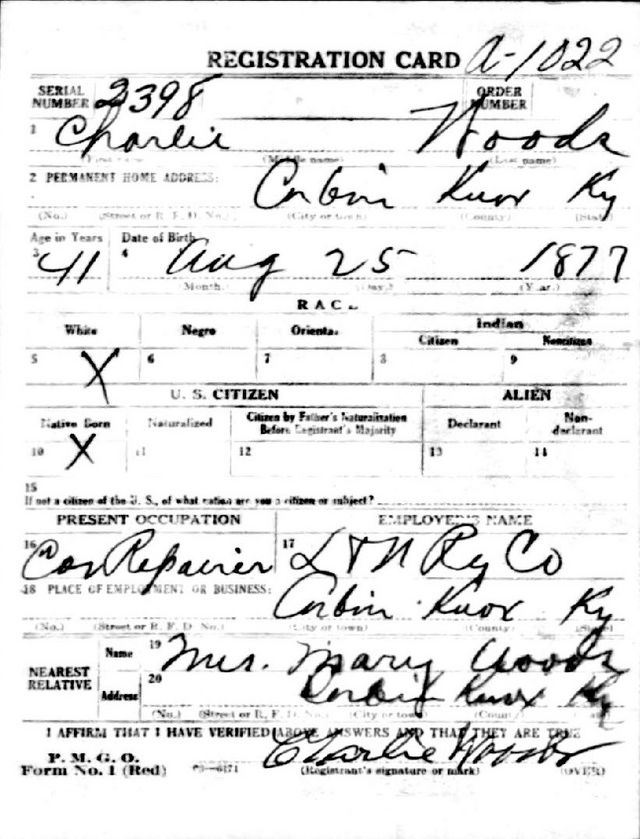 REGISTRATION CARD A-1022
SERIAL NUMBER 2398 ORDER NUMBER
1 Charlie Woods
(First name) (Middle name) (Last name)
2 PERMANENT HOME ADDRESS:
Corbin Knox Ky
(No.) (Street or R. F. D. No.) (City or town) (County) (State)
Age in Years Date of Birth
3 41 4 Aug 25 1877
(Month.) (Day.) (Year.)
RACE
White Negro Oriental Indian
Citizen Noncitizen
5 X 6 7 8 9
U. S. CITIZEN ALIEN
Native Born Naturalized Citizen by Father's Naturalization Before Registrant's Majority Declarant Non-declarant
10 X 11 12 13 14
15
If not a citizen of the U. S., of what nation are you a citizen or subject?
PRESENT OCCUPATION EMPLOYER'S NAME
16 Car Repairer 17 L & N Ry Co
18 PLACE OF EMPLOYMENT OR BUSINESS:
Corbin Knox Ky
(No.) (Street or R. F. D. No.) (City or town) (County) (State)
NEAREST RELATIVE
Name 19 Mrs. Mary Woods
Address 20 Corbin Knox Ky
(No.) (Street or R. F. D. No.) (City or town) (County)
I AFFIRM THAT I HAVE VERIFIED ABOVE ANSWERS AND THAT THEY ARE TRUE
P. M. G. O.
Form No. 1 (Red) 03—6171 Charlie Woods
(Registrant's signature or mark) (OVER)